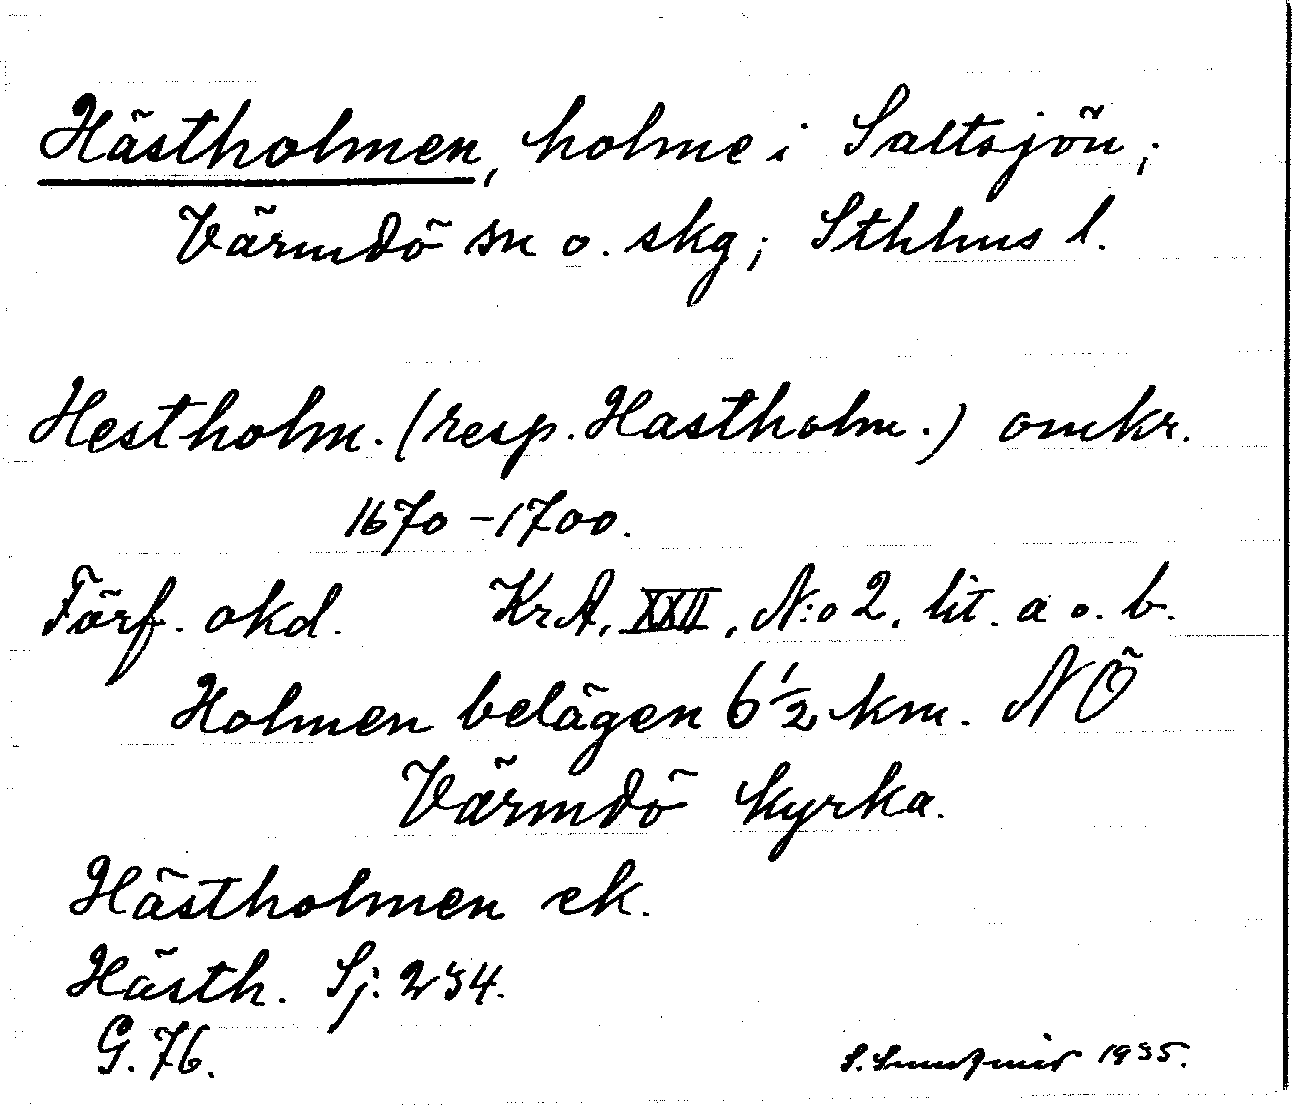 Hästholmen, holme i Saltsjön;
Värmdö sn o. skg; Sthlms l.
Hestholm. (resp. Hastholm.) omkr.
1670-1700.
Förf. okd. KrA, XXII, N:o 2. lit. a o. b.
Holmen belägen 6 1/2 km. NÖ
Värmdö kyrka.
Hästholmen ek.
Hästh. Sj: 234.
G. 76.
S. 1935.